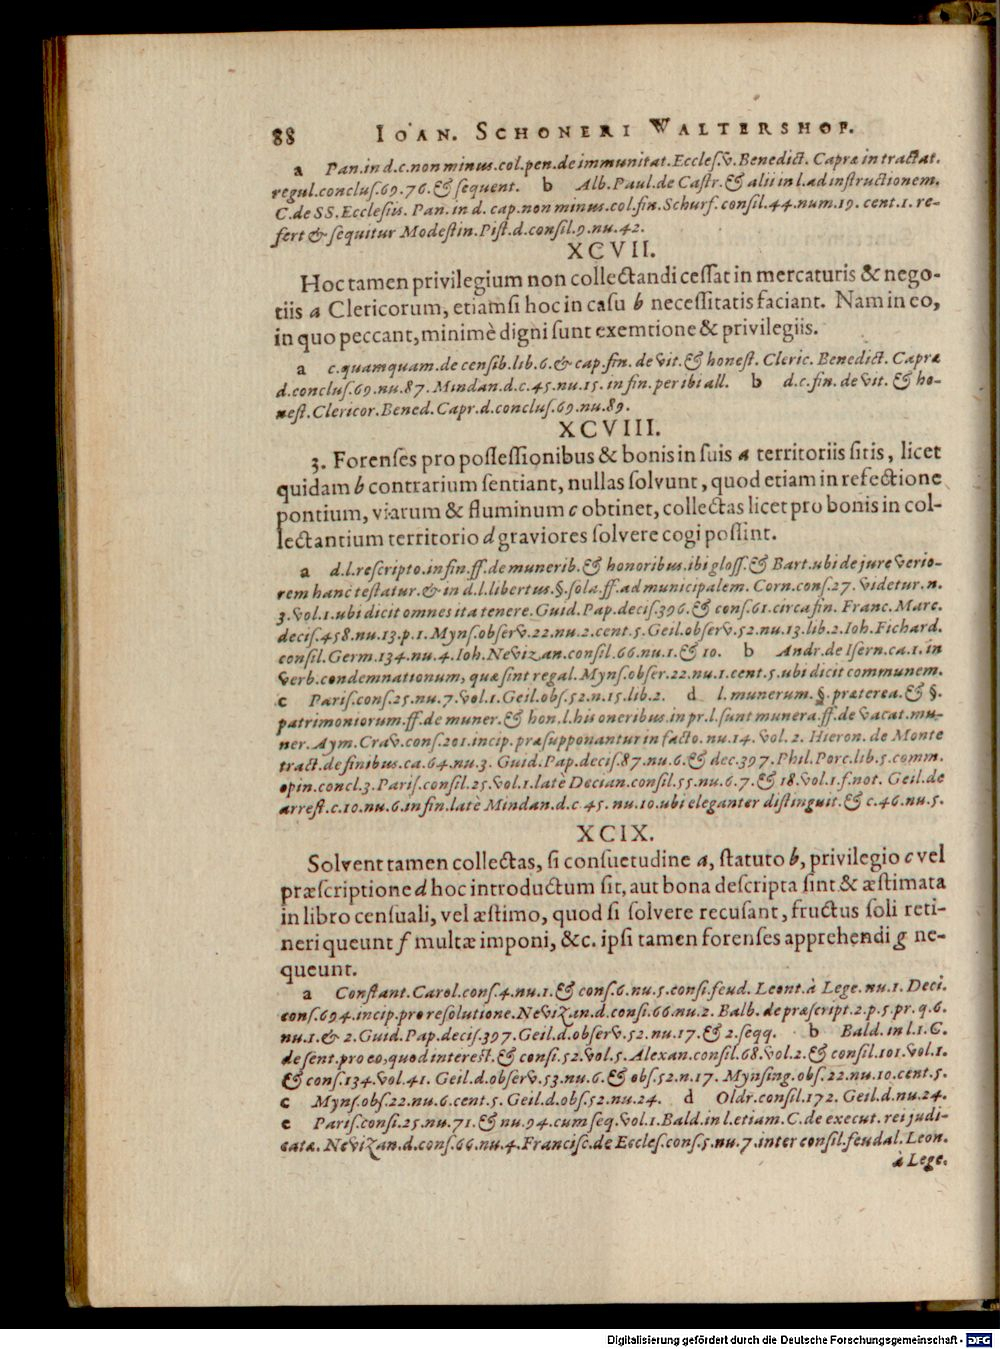 88 IOAN. SCHONERI WALTERSHOF.
a Pan. in d. c. non minus. col. pen. de immunitat. Eccles. v. Benedict. Capræ in tractat.
regul. concluſ. 69. 76. & ſequent. b Alb. Paul. de Caſtr. & alii in l. ad inſtructionem.
C. de SS. Ecclesiis. Pan. in d. cap. non minus. col. fin. Schurf. conſil. 44. num. 19. cent. 1. re-
fert & ſequitur Modeſtin. Piſt. d. conſil. 9. nu. 42.
XCVII.
Hoc tamen privilegium non collectandi ceſſat in mercaturis & nego-
tiis a Clericorum, etiamſi hoc in caſu b neceſſitatis faciant. Nam in eo,
in quo peccant, minimè digni ſunt exemtione & privilegiis.
a c. quamquam. de cenſib. lib. 6. & cap. fin. de vit. & honeſt. Cleric. Benedict. Capra
d. concluſ. 69. nu. 87. Mindan. d. c. 45. nu. 15. in fin. per ibi all. b d. c. fin. de vit. & ho-
neſt. Clericor. Bened. Capr. d. concluſ. 69. nu. 89.
XCVIII.
3. Forenſes pro poſſeſſionibus & bonis in ſuis a territoriis ſitis, licet
quidam b contrarium ſentiant, nullas ſolvunt, quod etiam in refectione
pontium, viarum & fluminum c obtinet, collectas licet pro bonis in col-
lectantium territorio d graviores ſolvere cogi poſſint.
a d. l. reſcripto. in fin. ff. de munerib. & honoribus. ibi gloſſ. & Bart. ubi de jure verio-
rem hanc teſtatur. & in d. l. libertus. §. ſola. ff. ad municipalem. Corn. conſ. 27. videtur. n.
3. vol. 1. ubi dicit omnes ita tenere. Guid. Pap. deciſ. 396. & conſ. 61. circa fin. Franc. Marc.
deciſ. 458. nu. 13. p. 1. Mynſ. obſerv. 22. nu. 2. cent. 5. Geil. obſerv. 52. nu. 13. lib. 2. Ioh. Fichard.
conſil. Germ. 134. nu. 4. Ioh. Nevizan. conſil. 66. nu. 1. & 10. b Andr. de Iſern. ca. 1. in
verb. condemnationum, quæ ſint regal. Mynſ. obſer. 22. nu. 1. cent. 5. ubi dicit communem.
c Pariſ. conſ. 25. nu. 7. vol. 1. Geil. obſ. 52. n. 15. lib. 2. d l. munerum. §. præterea. & §.
patrimoniorum. ff. de muner. & hon. l. his oneribus. in pr. l. ſunt munera. ff. de vacat. mu-
ner. Aym. Crav. conſ. 201. incip. præſupponantur in facto. nu. 14. vol. 2. Hieron. de Monte
tract. de finibus. ca. 64. nu. 3. Guid. Pap. deciſ. 87. nu. 6. & dec. 397. Phil. Porc. lib. 5. comm.
opin. concl. 3. Pariſ. conſil. 25. vol. 1. latè Decian. conſil. 55. nu. 6. 7. & 18. vol. 1. f. not. Geil. de
arreſt. c. 10. nu. 6. in fin. latè Mindan. d. c. 45. nu. 10. ubi eleganter diſtinguit. & c. 46. nu. 5.
XCIX.
Solvent tamen collectas, ſi conſuetudine a, ſtatuto b, privilegio c vel
præſcriptione d hoc introductum ſit, aut bona deſcripta ſint & æſtimata
in libro cenſuali, vel æſtimo, quod ſi ſolvere recuſant, fructus ſoli reti-
neri queunt f multæ imponi, &c. ipſi tamen forenſes apprehendi g ne-
queunt.
a Conſtant. Carol. conſ. 4. nu. 1. & conſ. 6. nu. 5. conſi. feud. Leont. à Lege. nu. 1. Deci.
conſ. 694. incip. pro reſolutione. Nevizan. d. conſi. 66. nu. 2. Balb. de præſcript. 2. p. 5. pr. q. 6.
nu. 1. & 2. Guid. Pap. deciſ. 397. Geil. d. obſerv. 52. nu. 17. & 2. ſeqq. b Bald. in l. 1. C.
de ſent. pro eo, quod intereſt. & conſi. 52. vol. 5. Alexan. conſil. 68. vol. 2. & conſil. 101. vol. 1.
& conſ. 134. vol. 41. Geil. d. obſerv. 53. nu. 6. & obſ. 52. n. 17. Mynſing. obſ. 22. nu. 10. cent. 5.
c Mynſ. obſ. 22. nu. 6. cent. 5. Geil. d. obſ. 52. nu. 24. d Oldr. conſil. 172. Geil. d. nu. 24.
e Pariſ. conſi. 25. nu. 71. & nu. 94. cum ſeq. vol. 1. Bald. in l. etiam. C. de execut. rei judi-
catæ. Nevizan. d. conſ. 66. nu. 4. Franciſc. de Eccleſ. conſ. 5. nu. 7. inter conſil. feudal. Leon.
à Lege.
Digitalisierung gefördert durch die Deutsche Forschungsgemeinschaft - DFG